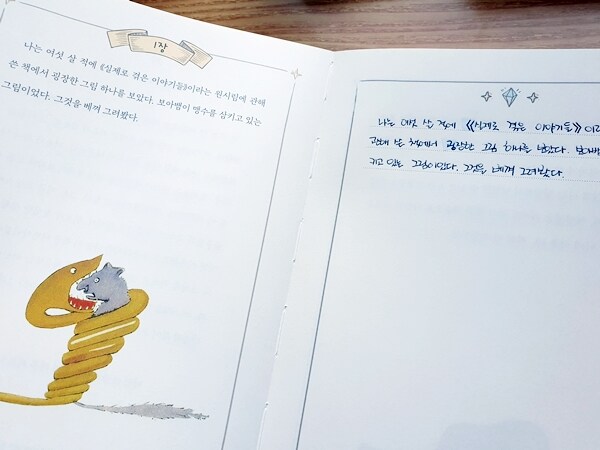 1장
나는 여섯 살 적에 《실제로 겪은 이야기들》이라는 원시림에 관해
쓴 책에서 굉장한 그림 하나를 보았다. 보아뱀이 맹수를 삼키고 있는
그림이었다. 그것을 베껴 그려봤다.
나는 여섯 살 적에 《실제로 겪은 이야기들》 이라
관해 쓴 책에서 굉장한 그림 하나를 보았다. 보아뱀
키고 있는 그림이었다. 그것을 베껴 그려봤다.